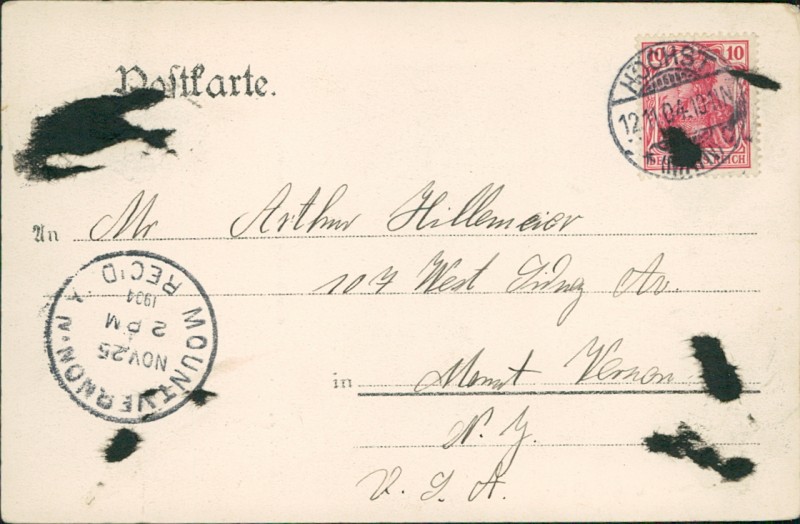 Postkarte.
10
HÖCHST
12.11.04.
REICH
An Mr Arthur Hillemeier
107 West Sidney Av.
in Mount Vernon
N. Y.
U. S. A.
MOUNT VERNON N.Y.
NOV 25
2 PM
1904
REC'D